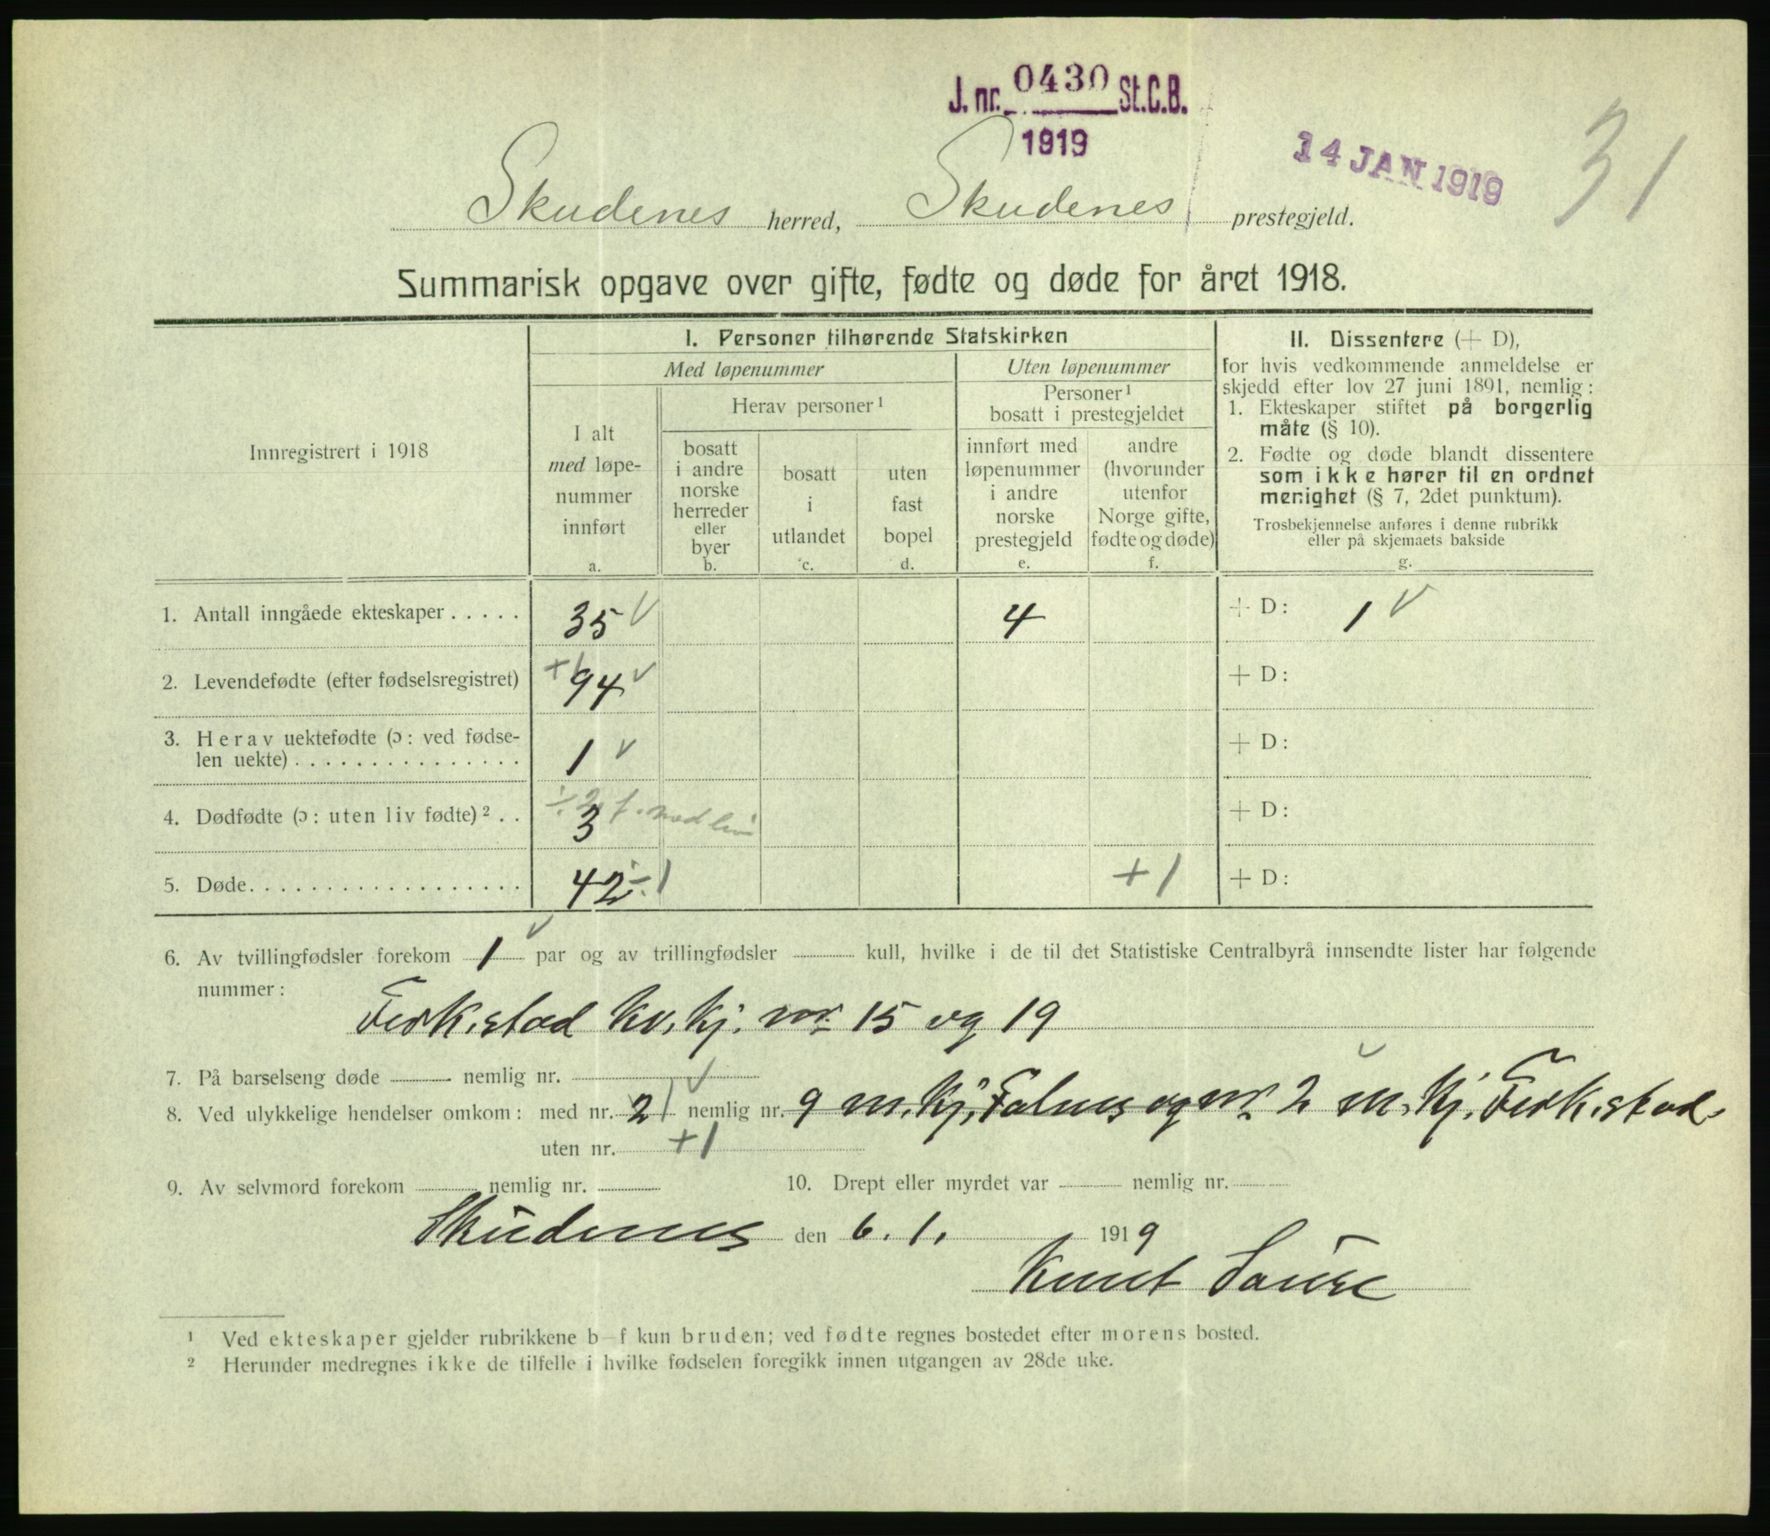 J. nr. 0430 St.C.B.
1919
14 JAN 1919
31
Skudenes herred, Skudenes prestegjeld.
Summarisk opgave over gifte, fødte og døde for året 1918.
Innregistrert i 1918
I. Personer tilhørende Statskirken
Med løpenummer
Uten løpenummer
I alt
med løpe-
nummer
innført
a.
Herav personer 1
bosatt
i andre
norske
herreder
eller
byer
b.
bosatt
i
utlandet
c.
uten
fast
bopel
d.
Personer 1
bosatt i prestegjeldet
innført med
løpenummer
i andre
norske
prestegjeld
e.
andre
(hvorunder
utenfor
Norge gifte,
fødte og døde)
f.
II. Dissentere (+ D),
for hvis vedkommende anmeldelse er
skjedd efter lov 27 juni 1891, nemlig:
1. Ekteskaper stiftet på borgerlig
måte (§ 10).
2. Fødte og døde blandt dissentere
som ikke hører til en ordnet
menighet (§ 7, 2det punktum).
Trosbekjennelse anføres i denne rubrikk
eller på skjemaets bakside
g.
1. Antall inngåede ekteskaper ..... 35 √ 4 + D: 1 √
2. Levendefødte (efter fødselsregistret) +1 94 √ + D:
3. Herav uektefødte (ɔ: ved fødse-
len uekte) ............... 1 √ + D:
4. Dødfødte (ɔ: uten liv fødte) 2 .. ÷ 2 f. med liv 3 + D:
5. Døde .................. 42 ÷ 1 + 1 + D:
6. Av tvillingfødsler forekom 1 √ par og av trillingfødsler kull, hvilke i de til det Statistiske Centralbyrå innsendte lister har følgende
nummer:
Ferkestad kv. kj. nr 15 og 19
7. På barselseng døde nemlig nr.
8. Ved ulykkelige hendelser omkom: med nr. 2 nemlig nr. 9 m. kj. Falnes og nr 2 m. kj. Ferkestad
uten nr. +1
9. Av selvmord forekom nemlig nr. 10. Drept eller myrdet var nemlig nr.
Skudenes den 6. 1. 1919
Knut
1 Ved ekteskaper gjelder rubrikkene b—f kun bruden; ved fødte regnes bostedet efter morens bosted.
2 Herunder medregnes ikke de tilfelle i hvilke fødselen foregikk innen utgangen av 28de uke.